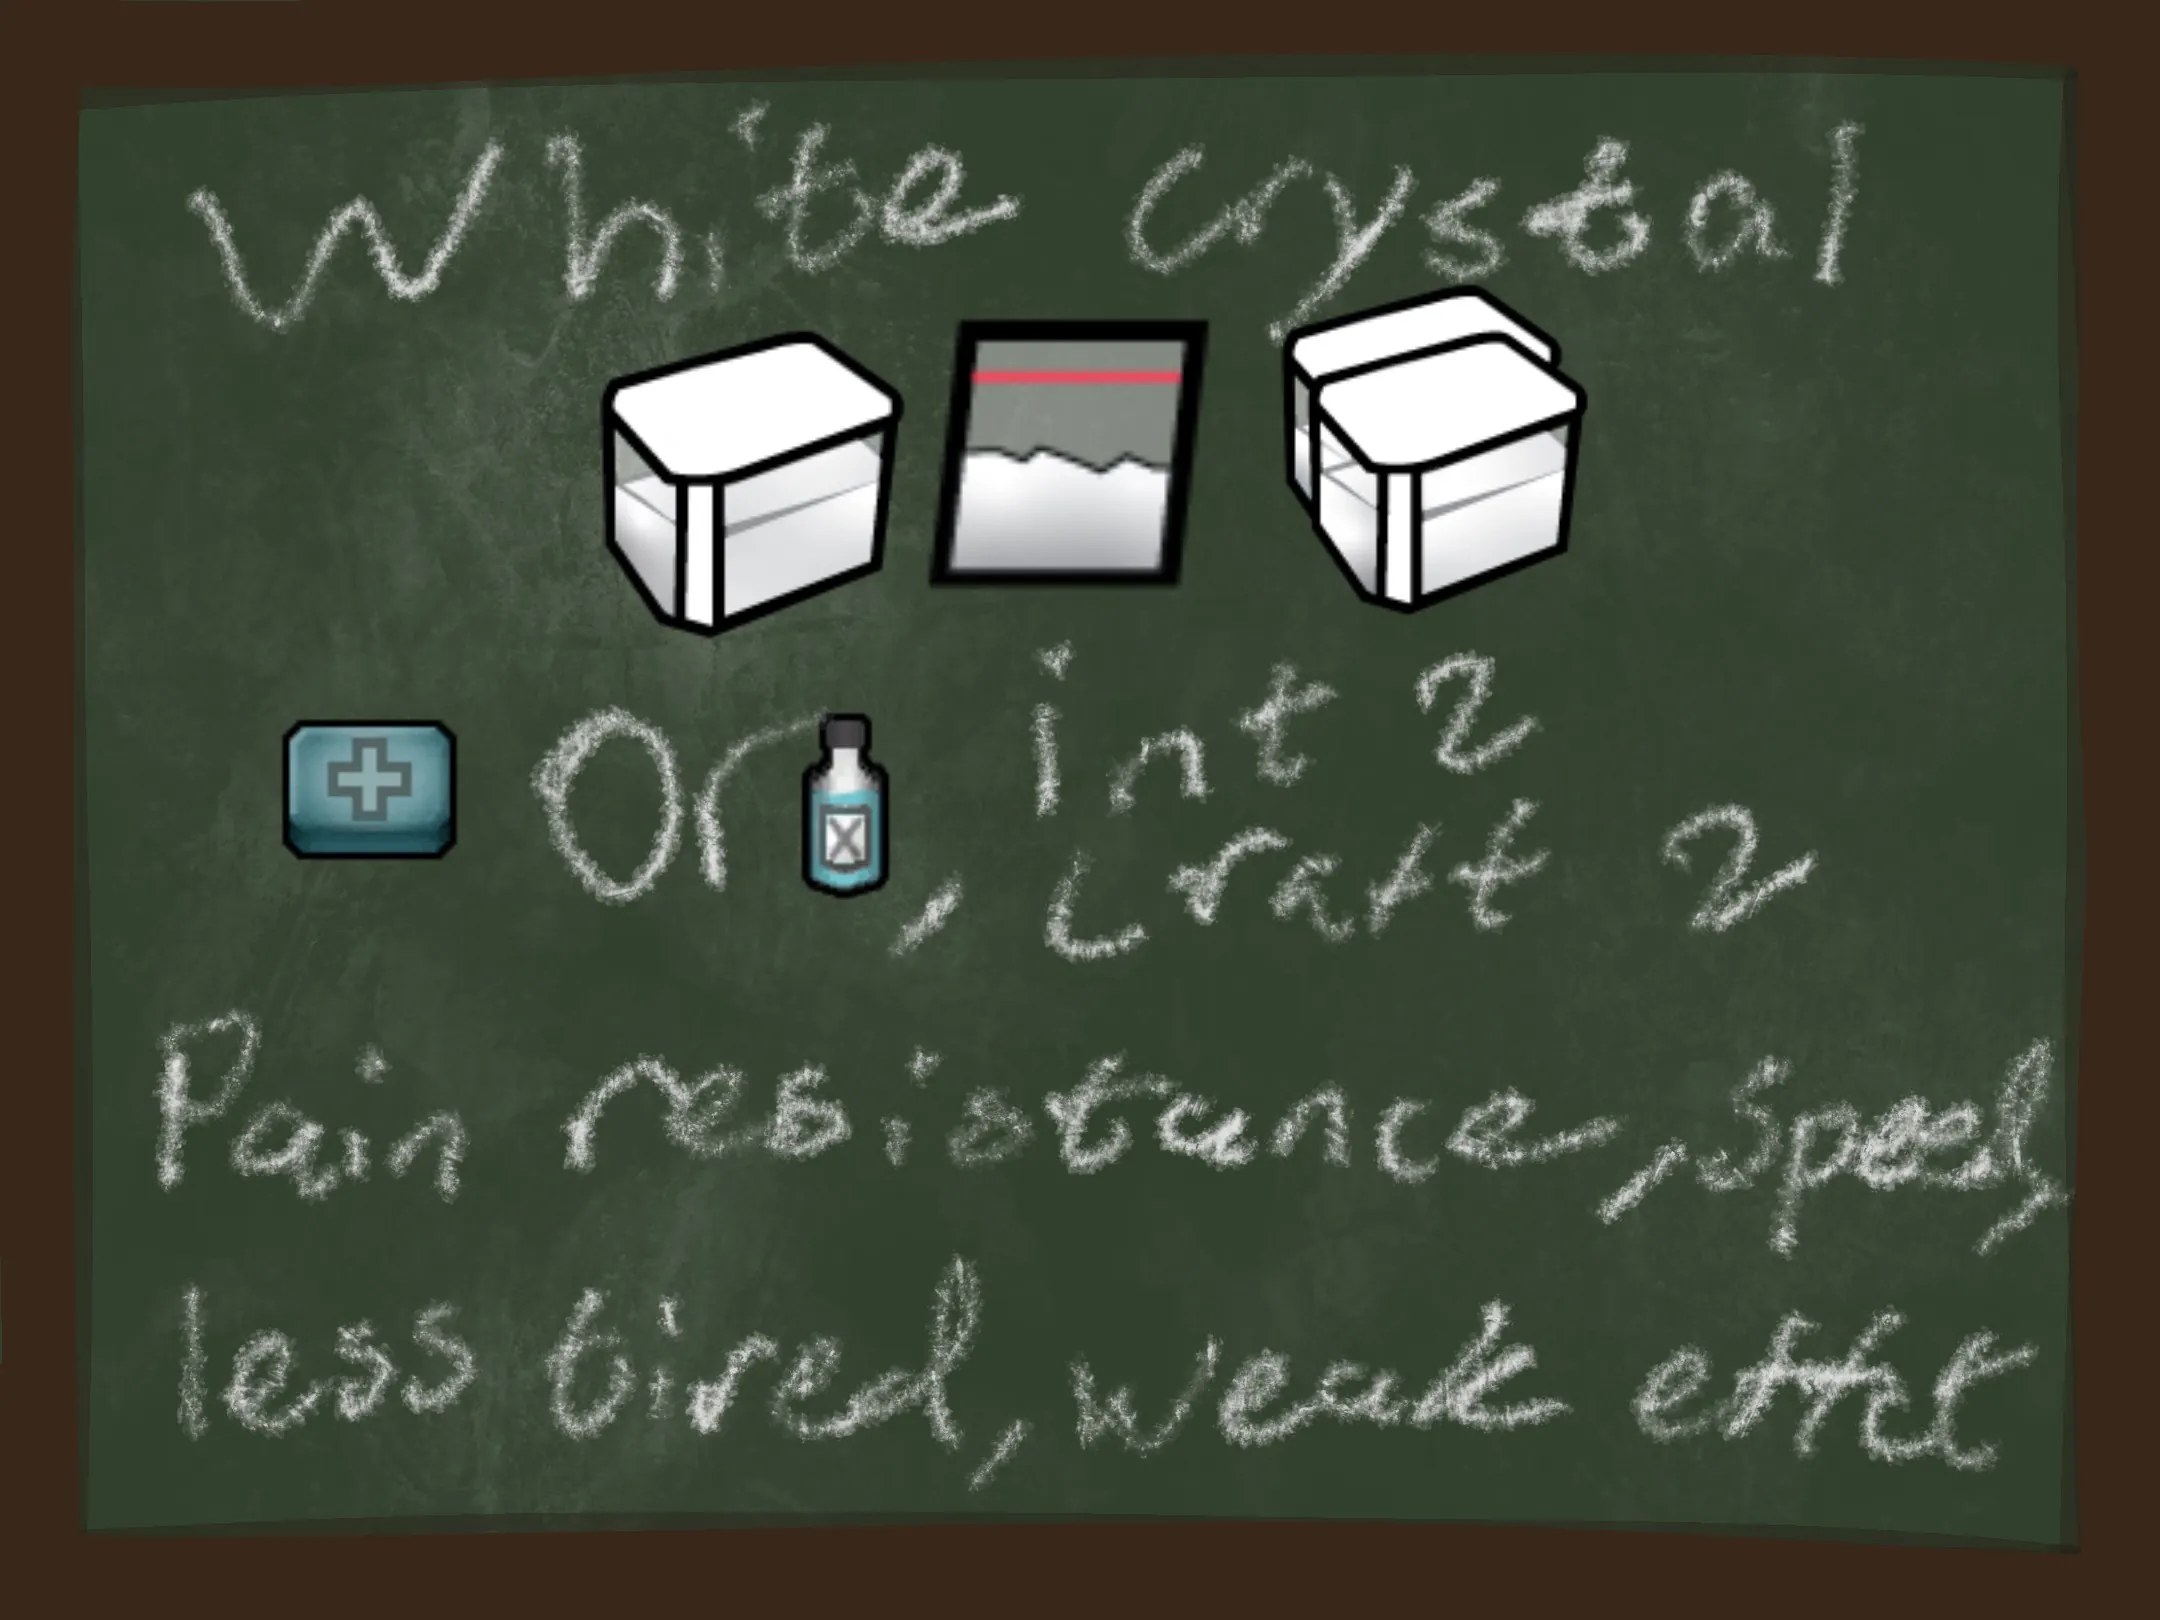 White crystal
Or X, int 2
craft 2
Pain resistance, Speed,
less tired, weak effect